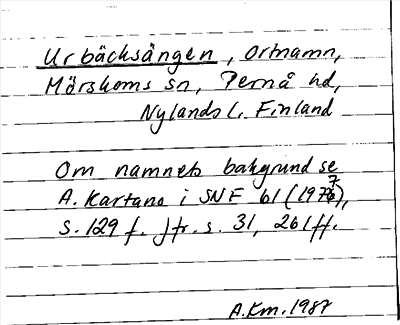 Urbäcksängen, Ortnamn,
Mörskoms sn, Pernå hd,
Nylands l. Finland
Om namnets bakgrund se
A. Kartano i SNF 61 (1977),
s. 129 f. Jfr. s. 31, 261 ff.
A.Km. 1987